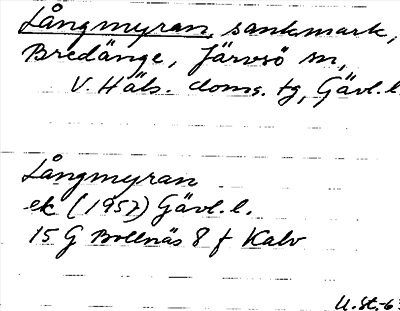 Långmyran, sankmark,
Bredänge, Järvsö sn,
V. Häls. doms. tg, Gävl. l.
Långmyran
ek (1957) Gävl. l.
15 G Bollnäs 8 f Kalv
U. St. -63